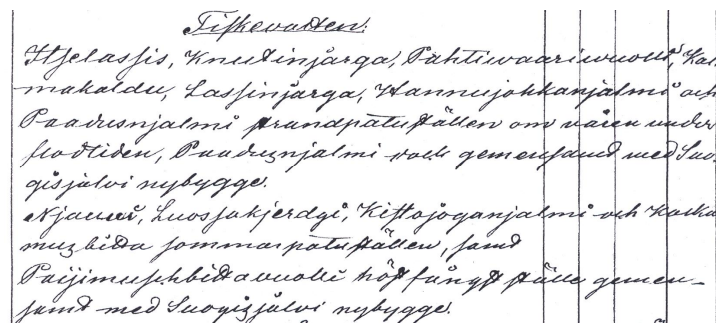 Fiskevatten:
Itselassis, Knutinjarga, Pahtiwaariwuolli,
makaldu, Lassinjarga, Hannujokkanjalmi och
Paadusnjalmi strandpatuställen om våren under
flodtiden, Paadusnjalmi och gemensamt med Suo-
gisjalvi nybygge.
Njauvi, Luossakjerdgi, Kittojoganjalmi och Kaska
muzbidta sommarpatuställen, samt
höstfångstställe gemen-
samt med Suogisjalvi nybygge.